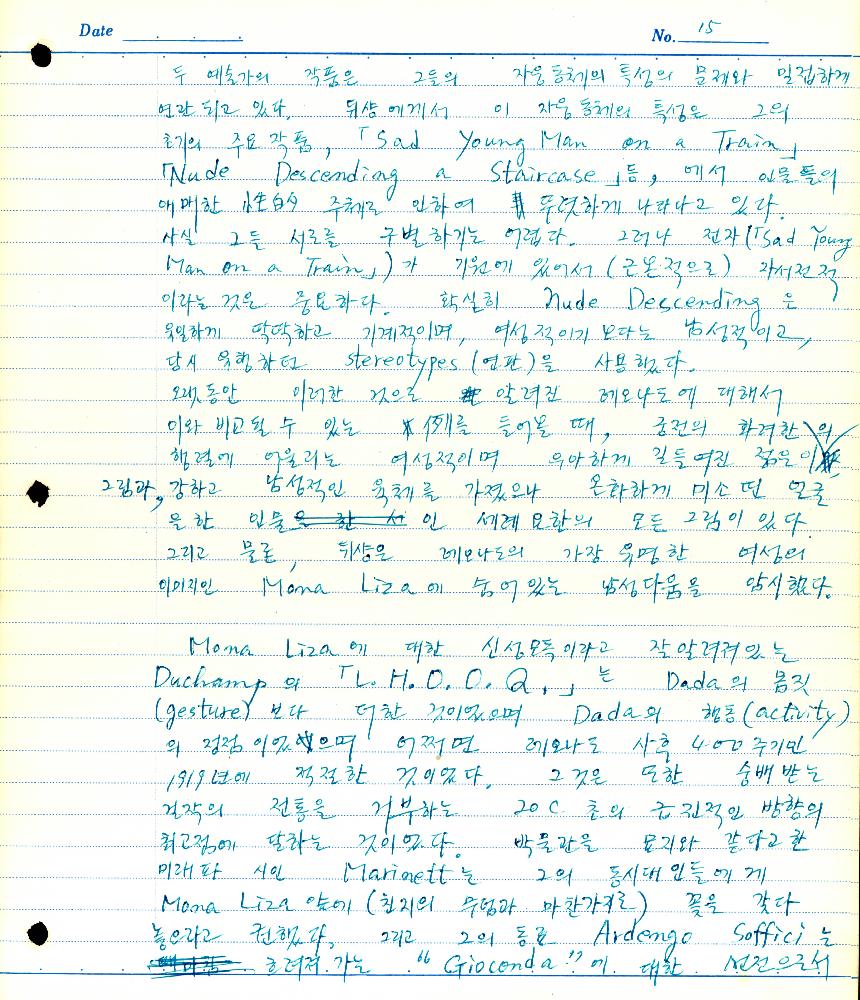 Date
No. 15
두 예술가의 작품은 그들의 자웅동체의 특성의 문제와 밀접하게
연관되고 있다. 뒤샹에게서 이 자웅동체의 특성은 그의
초기의 주요작품, 「Sad Young Man on a Train」
「Nude Descending a Staircase」등, 에서 인물들의
애매한 性的 주체로 인하여 뚜렷하게 나타나고 있다.
사실 그들 서로를 구별하기는 어렵다. 그러나 전자(「Sad Young
Man on a Train」)가 기원에 있어서 (근본적으로) 자서전적
이라는 것은 중요하다. 확실히 Nude Descending 은
유일하게 딱딱하고 기계적이며, 여성적이기 보다는 남성적이고,
당시 유행하던 stereotypes (연판)을 사용했다.
오랫동안 이러한 것으로 알려진 레오나도에 대해서
이와 비교될 수 있는 1例를 들어볼 때, 궁전의 화려한
행렬에 어울리는 여성적이며 우아하게 길들여진 젊은이의
그림과, 강하고 남성적인 육체를 가졌으나 온화하게 미소 띤 얼굴
을 한 인물인 세례요한의 모든 그림이 있다.
그리고 물론, 뒤샹은 레오나도의 가장 유명한 여성의
이미지인 Mona Liza에 숨어있는 남성다움을 암시했다.
Mona Liza에 대한 신성모독이라고 잘 알려져있는
Duchamp의 「L. H. O. O. Q.」는 Dada의 몸짓
(gesture) 보다 더한 것이었으며 Dada의 행동(activity)
의 정점이었으며 어쩌면 레오나도 사후 400주기인
1919년에 적절한 것이었다. 그것은 또한 숭배받는
걸작의 전통을 거부하는 20C 초의 급진적인 방향의
최고점에 달하는 것이었다. 박물관을 묘지와 같다고 한
미래파 시인 Marinett는 그의 동시대인들에게
Mona Liza 앞에 (친지의 무덤과 마찬가지로) 꽃을 갖다
놓으라고 권했다. 그리고 그의 동료 Ardengo Soffici는
흐려져가는 "Gioconda"에 대한 선전으로서